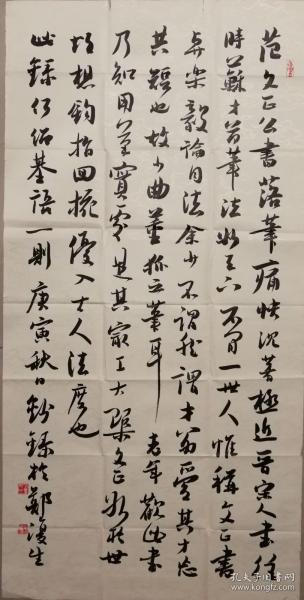 范文正公書落筆痛快沉著極近晉宋人書往
時蘇才翁筆法妙天下不肯一世人惟稱文正書
與樂毅論同法余少不謂然謂才翁愛其才忘
其短也故少曲董狐之筆耳 老年觀此書
乃知用筆實處是其最工大概文正妙於世
故想鉤指回腕優入古人法度也
此錄何紹基語一則 庚寅秋日鈔錄於鄭漫生
孔夫子旧书网